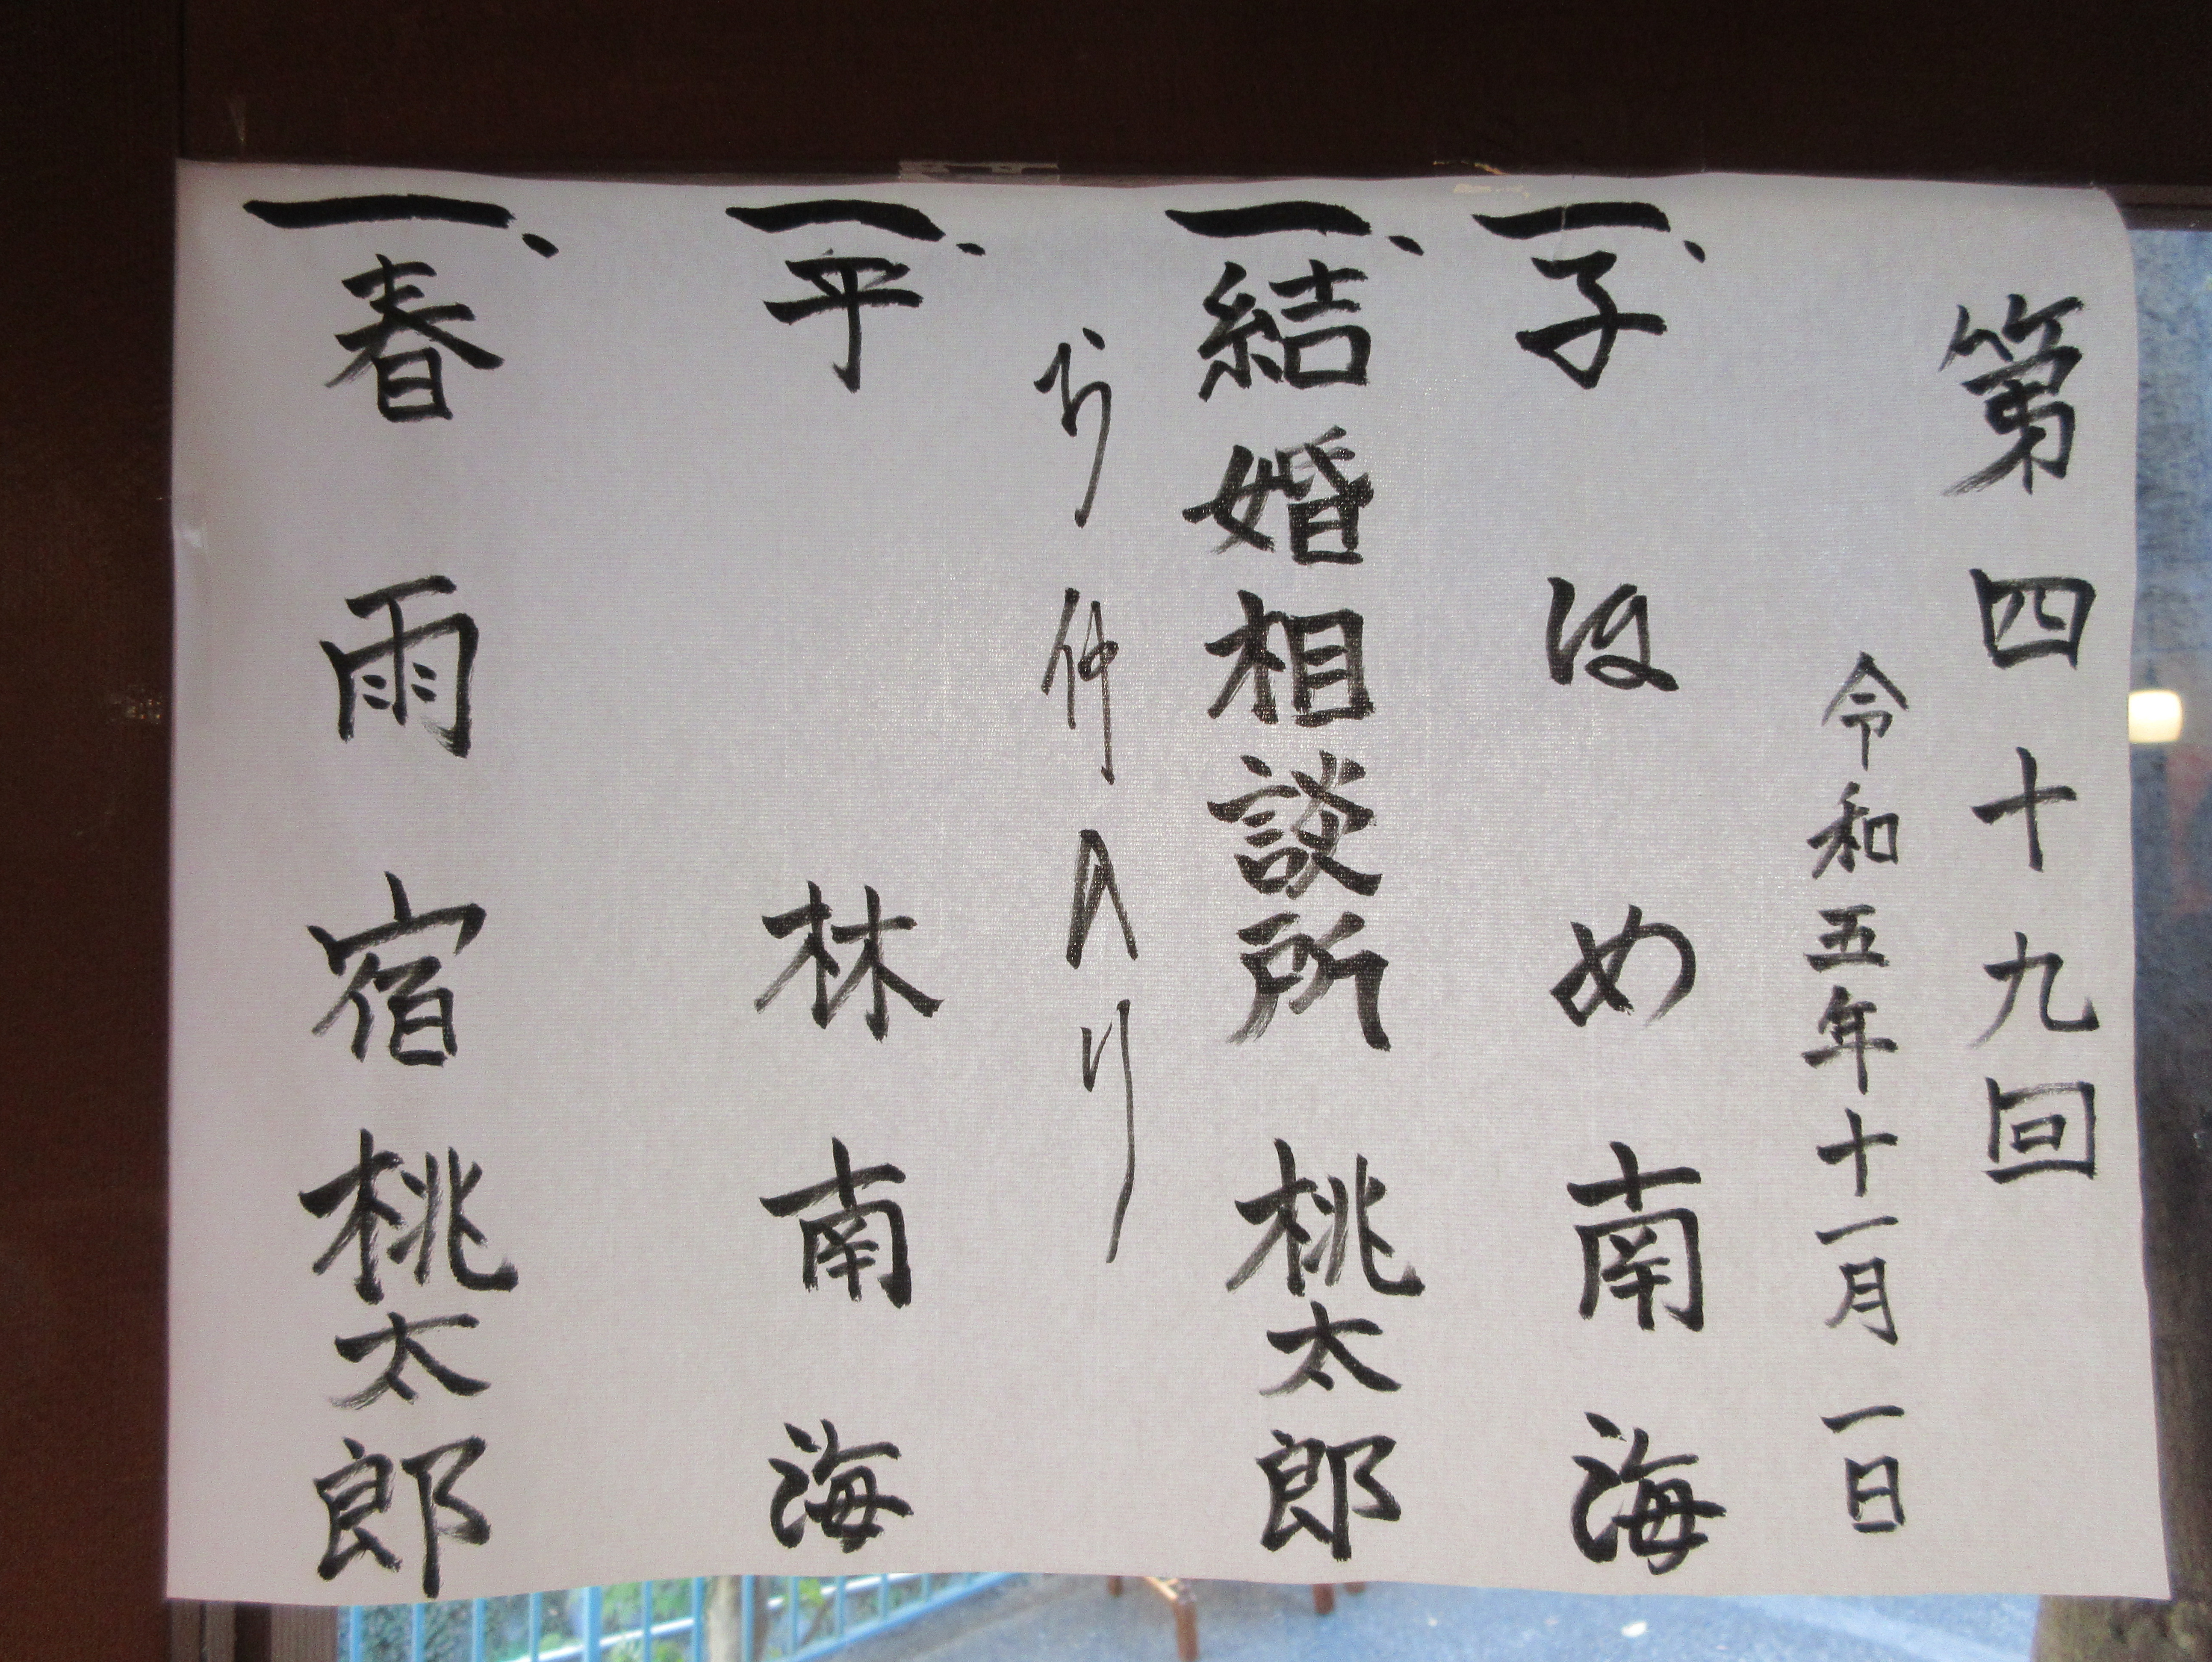 第四十九回
令和五年十一月一日
一、子ほめ 南海
一、結婚相談所 桃太郎
お仲入り
一、平林 南海
一、春雨宿 桃太郎